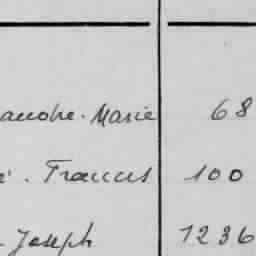 anche. Marie 68
é. Francis 100
. Joseph 1236